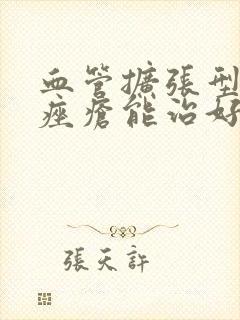 血管擴張型
痤瘡能治好
張天許